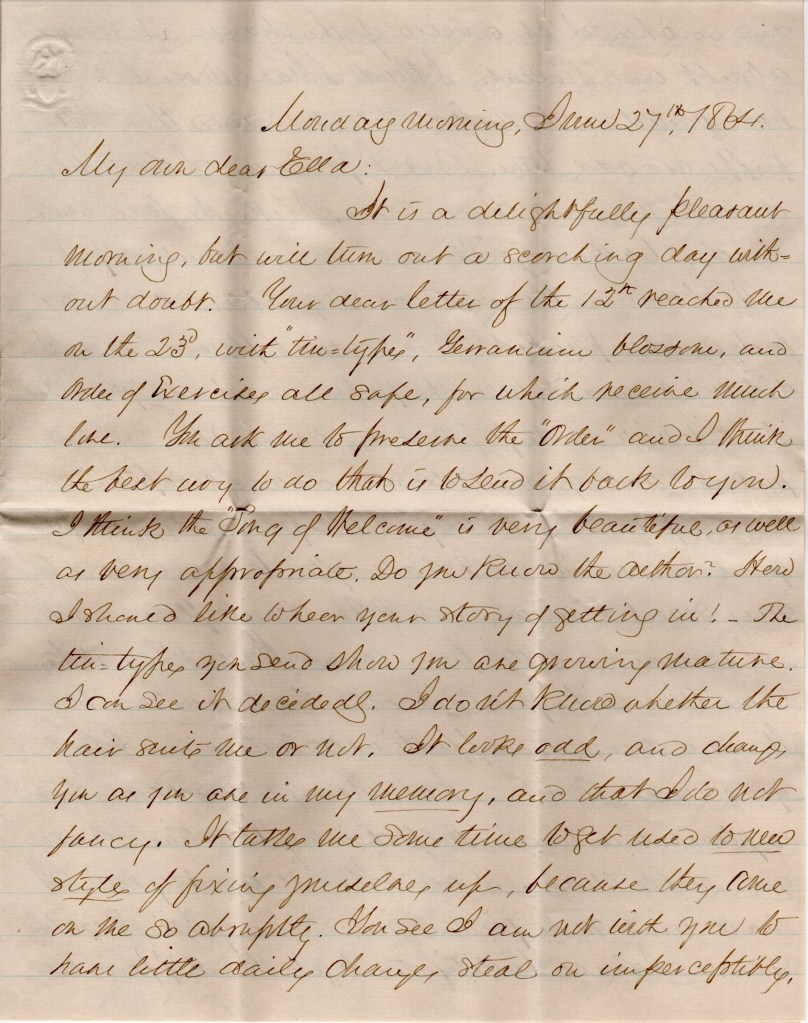 Monday morning, June 27th, 1864.
My own dear Ella:
It is a delightfully pleasant
morning, but will turn out a scorching day with=
out doubt. Your dear letter of the 12th reached me
on the 23d, with "tin=types", Gerranium blossom, and
Order of Exercises all safe, for which receive much
love. You ask me to preserve the "Order" and I think
the best way to do that is to send it back to you.
I think the "Song of Welcome" is very beautiful, as well
as very appropriate. Do you know the author? How
I should like to hear your story of getting in! – The
tin=types you send show you are growing mature.
I can see it decidedly. I don't know whether the
hair suits me or not. It looks odd, and changes
you as you are in my memory, and that I do not
fancy. It takes me some time to get used to new
styles of fixing yourselves up, because they come
on me so abruptly. You see I am not with you to
have little daily changes steal on imperceptibly.